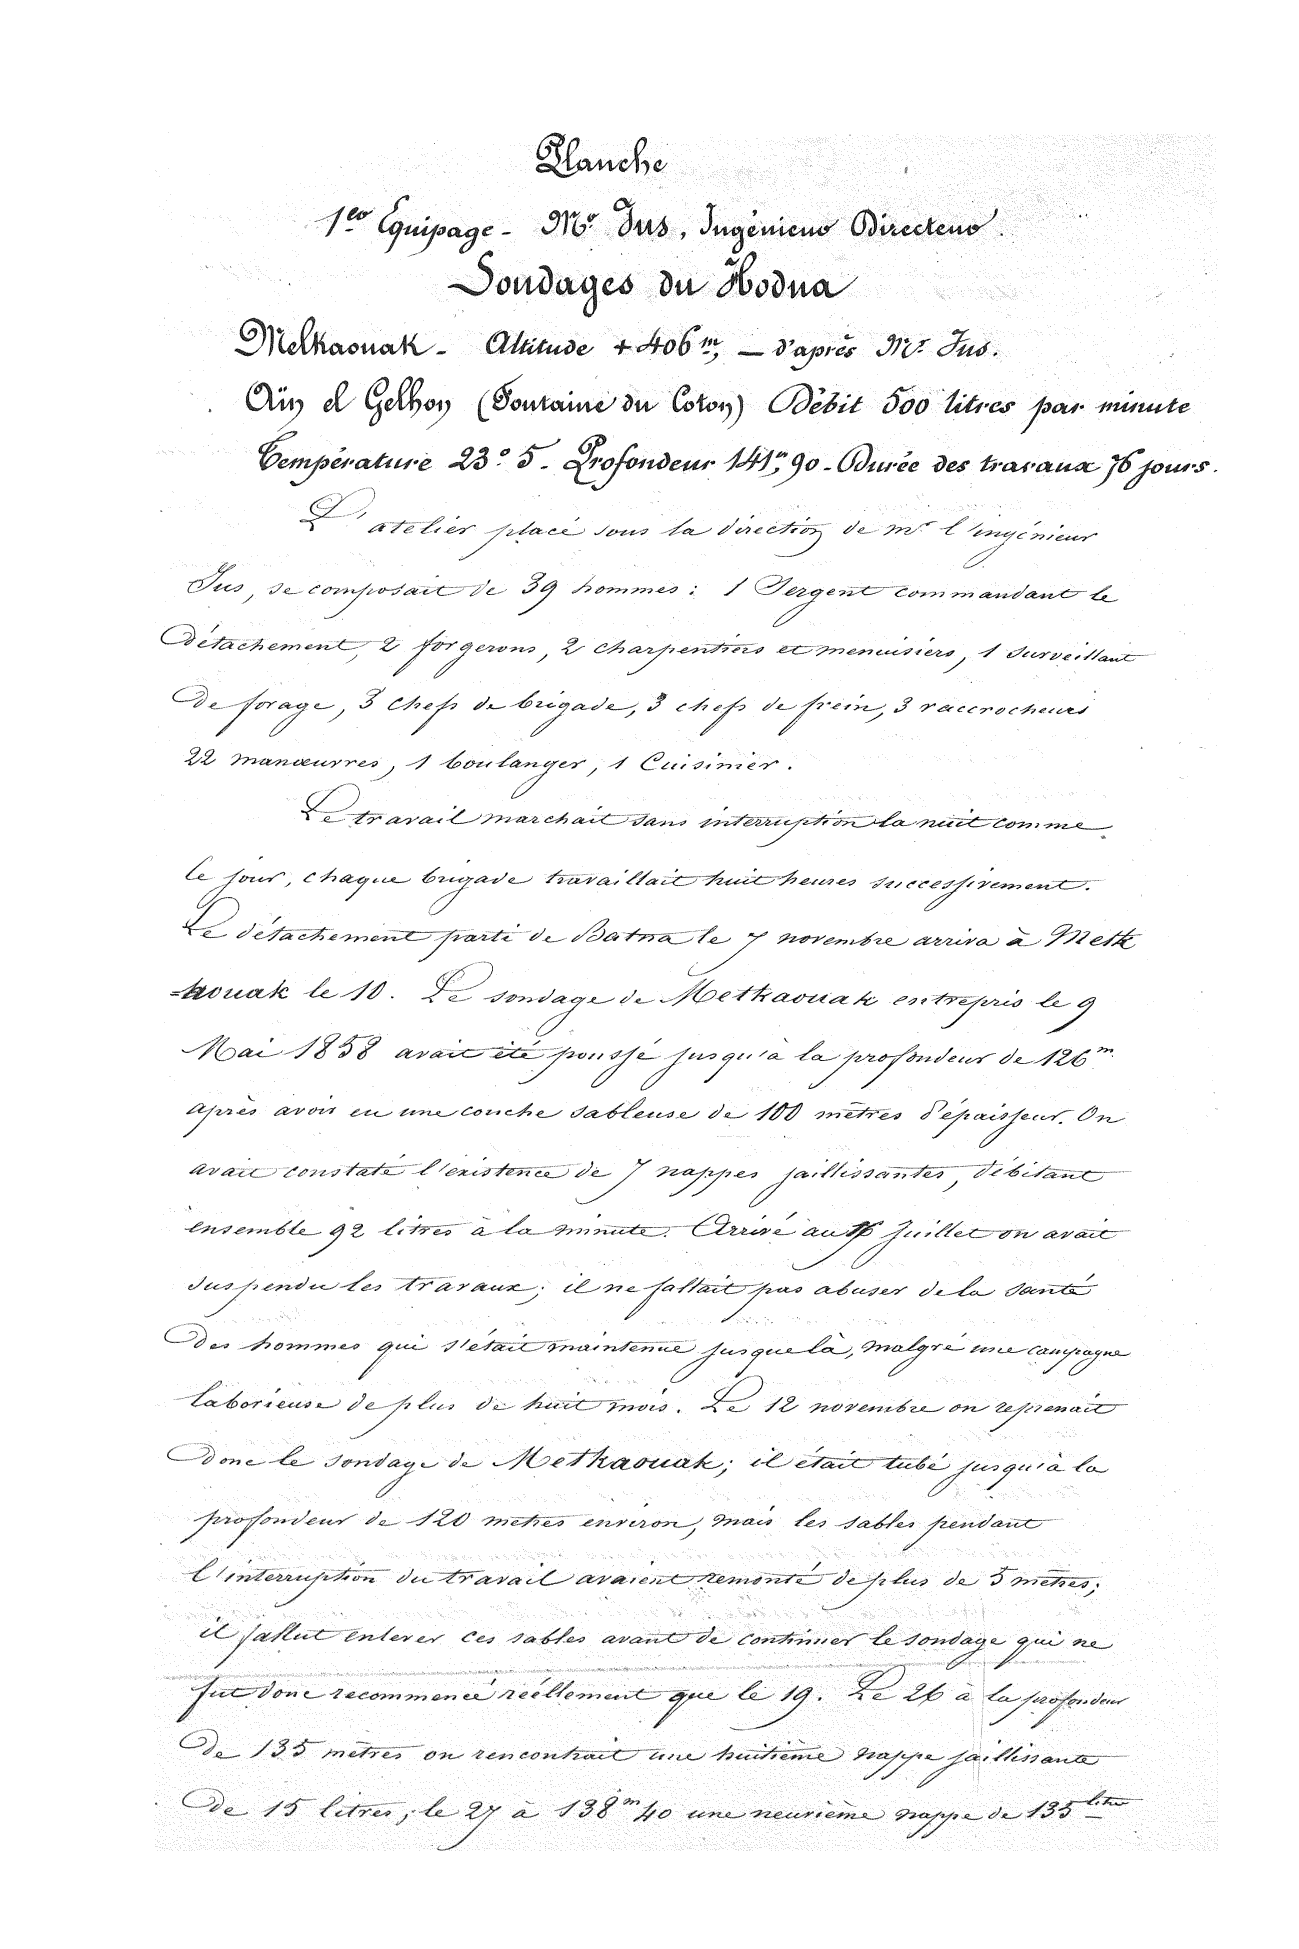 Planche
1er Equipage - Mr Jus, Ingénieur Directeur.
Sondages du Hodna
Metkaouak - Altitude + 406m, - d'après Mr Jus.
Aïn el Gelhon (Fontaine du Coton) Débit 500 litres par minute
Température 23° 5 - Profondeur 141m,90 - Durée des travaux 76 jours.
L'atelier placé sous la direction de mr l'ingénieur
Jus, se composait de 39 hommes : 1 Sergent commandant le
détachement, 2 forgerons, 2 charpentiers et menuisiers, 1 surveillant
de forage, 3 chefs de brigade, 3 chefs de frein, 3 raccrocheurs
22 manœuvres, 1 boulanger, 1 Cuisinier.
Le travail marchait sans interruption la nuit comme
le jour, chaque brigade travaillait huit heures successivement.
Le détachement parti de Batna le 7 novembre arriva à Metk
=aouak le 10. Le sondage de Metkaouak entrepris le 9
Mai 1858 avait été poussé jusqu'à la profondeur de 126m
après avoir eu une couche sableuse de 100 mètres d'épaisseur. On
avait constaté l'existence de 7 nappes jaillissantes, débitant
ensemble 92 litres à la minute. Arrivé au 16 Juillet on avait
suspendu les travaux ; il ne fallait pas abuser de la santé
des hommes qui s'était maintenue jusque là, malgré une campagne
laborieuse de plus de huit mois. Le 12 novembre on reprenait
donc le sondage de Metkaouak ; il était tubé jusqu'à la
profondeur de 120 mètres environ, mais les sables pendant
l'interruption du travail avaient remonté de plus de 5 mètres ;
il fallut enlever ces sables avant de continuer le sondage qui ne
fut donc recommencé réellement que le 19. Le 26 à la profondeur
de 135 mètres on rencontrait une huitième nappe jaillissante
de 15 litres ; le 27 à 138m 40 une neuvième nappe de 135 litres